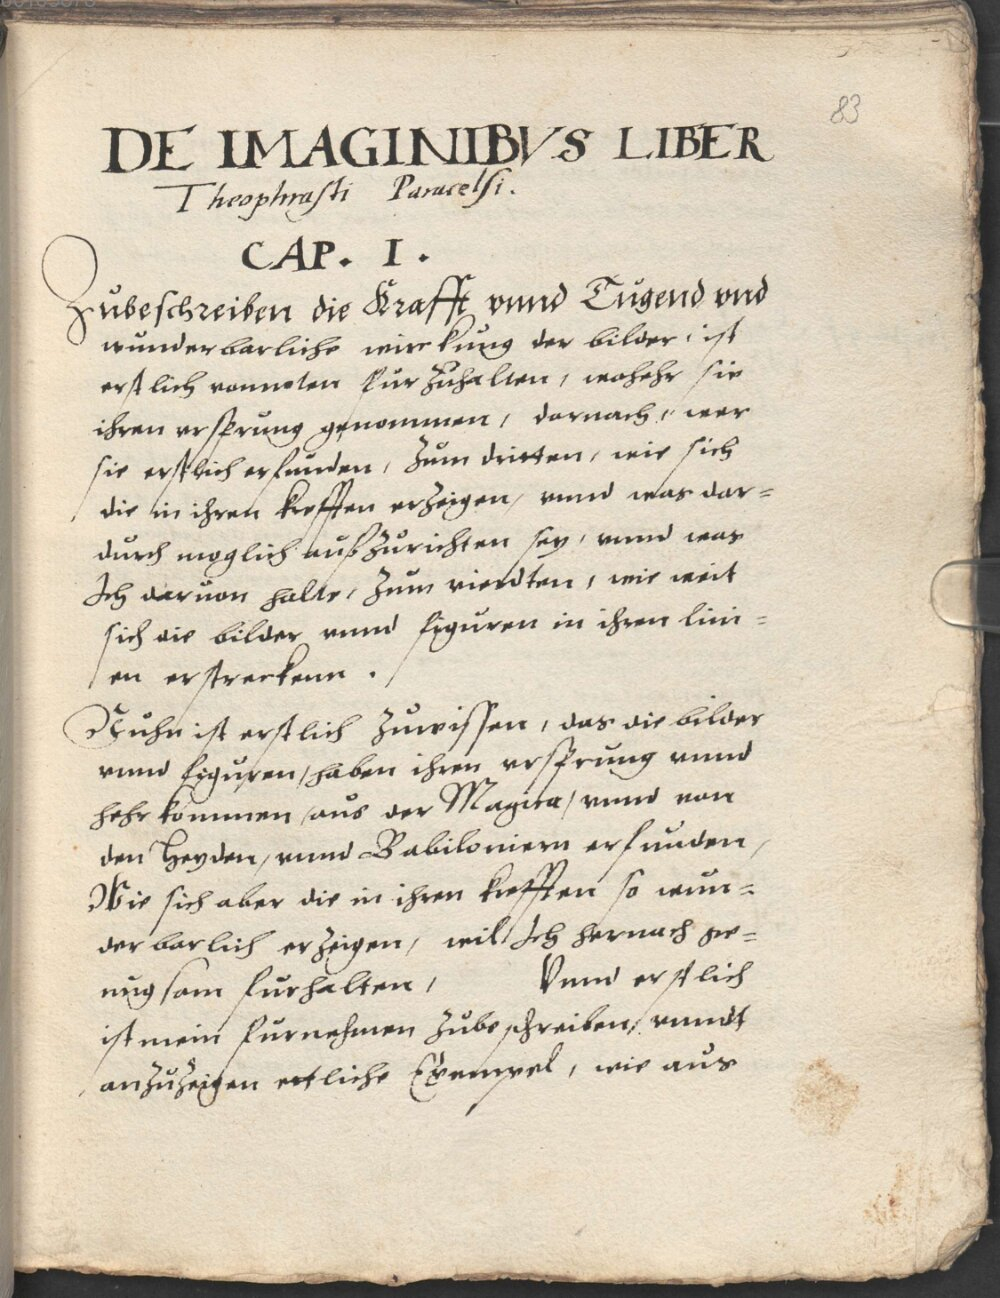 83
DE IMAGINIBVS LIBER
Theophrasti Paracelsi.
CAP. I.
Zubeschreiben die Krafft vnnd Tugend vnd
wunderbarliche wirckung der bilder, ist
erstlich vonnoten furzuhalten, wohehr sie
ihren vrsprung genommen, darnach, wer
sie erstlich erfunden, Zum dritten, wie sich
die in ihren krefften erzeigen, vnnd was dar=
durch moglich außzurichten sey, vnnd was
Ich daruon halte, Zum vierdten, wie weit
sich die bilder vnnd figuren in ihren lini=
en erstreckenn.
Nuhn ist erstlich zuwissen, das die bilder
vnnd figuren, haben ihren vrsprung vnnd
hehrkommen, aus der Magica, vnnd von
den Heyden, vnnd Babiloniern erfunden,
Wie sich aber die in ihren krefften so wun=
derbarlich erzeigen, will Ich hernach ge=
nugsam furhalten, Vnnd erstlich
ist mein furnehmen zubeschreiben, vnndt
anzuzeigen ettliche Exempel, wie aus